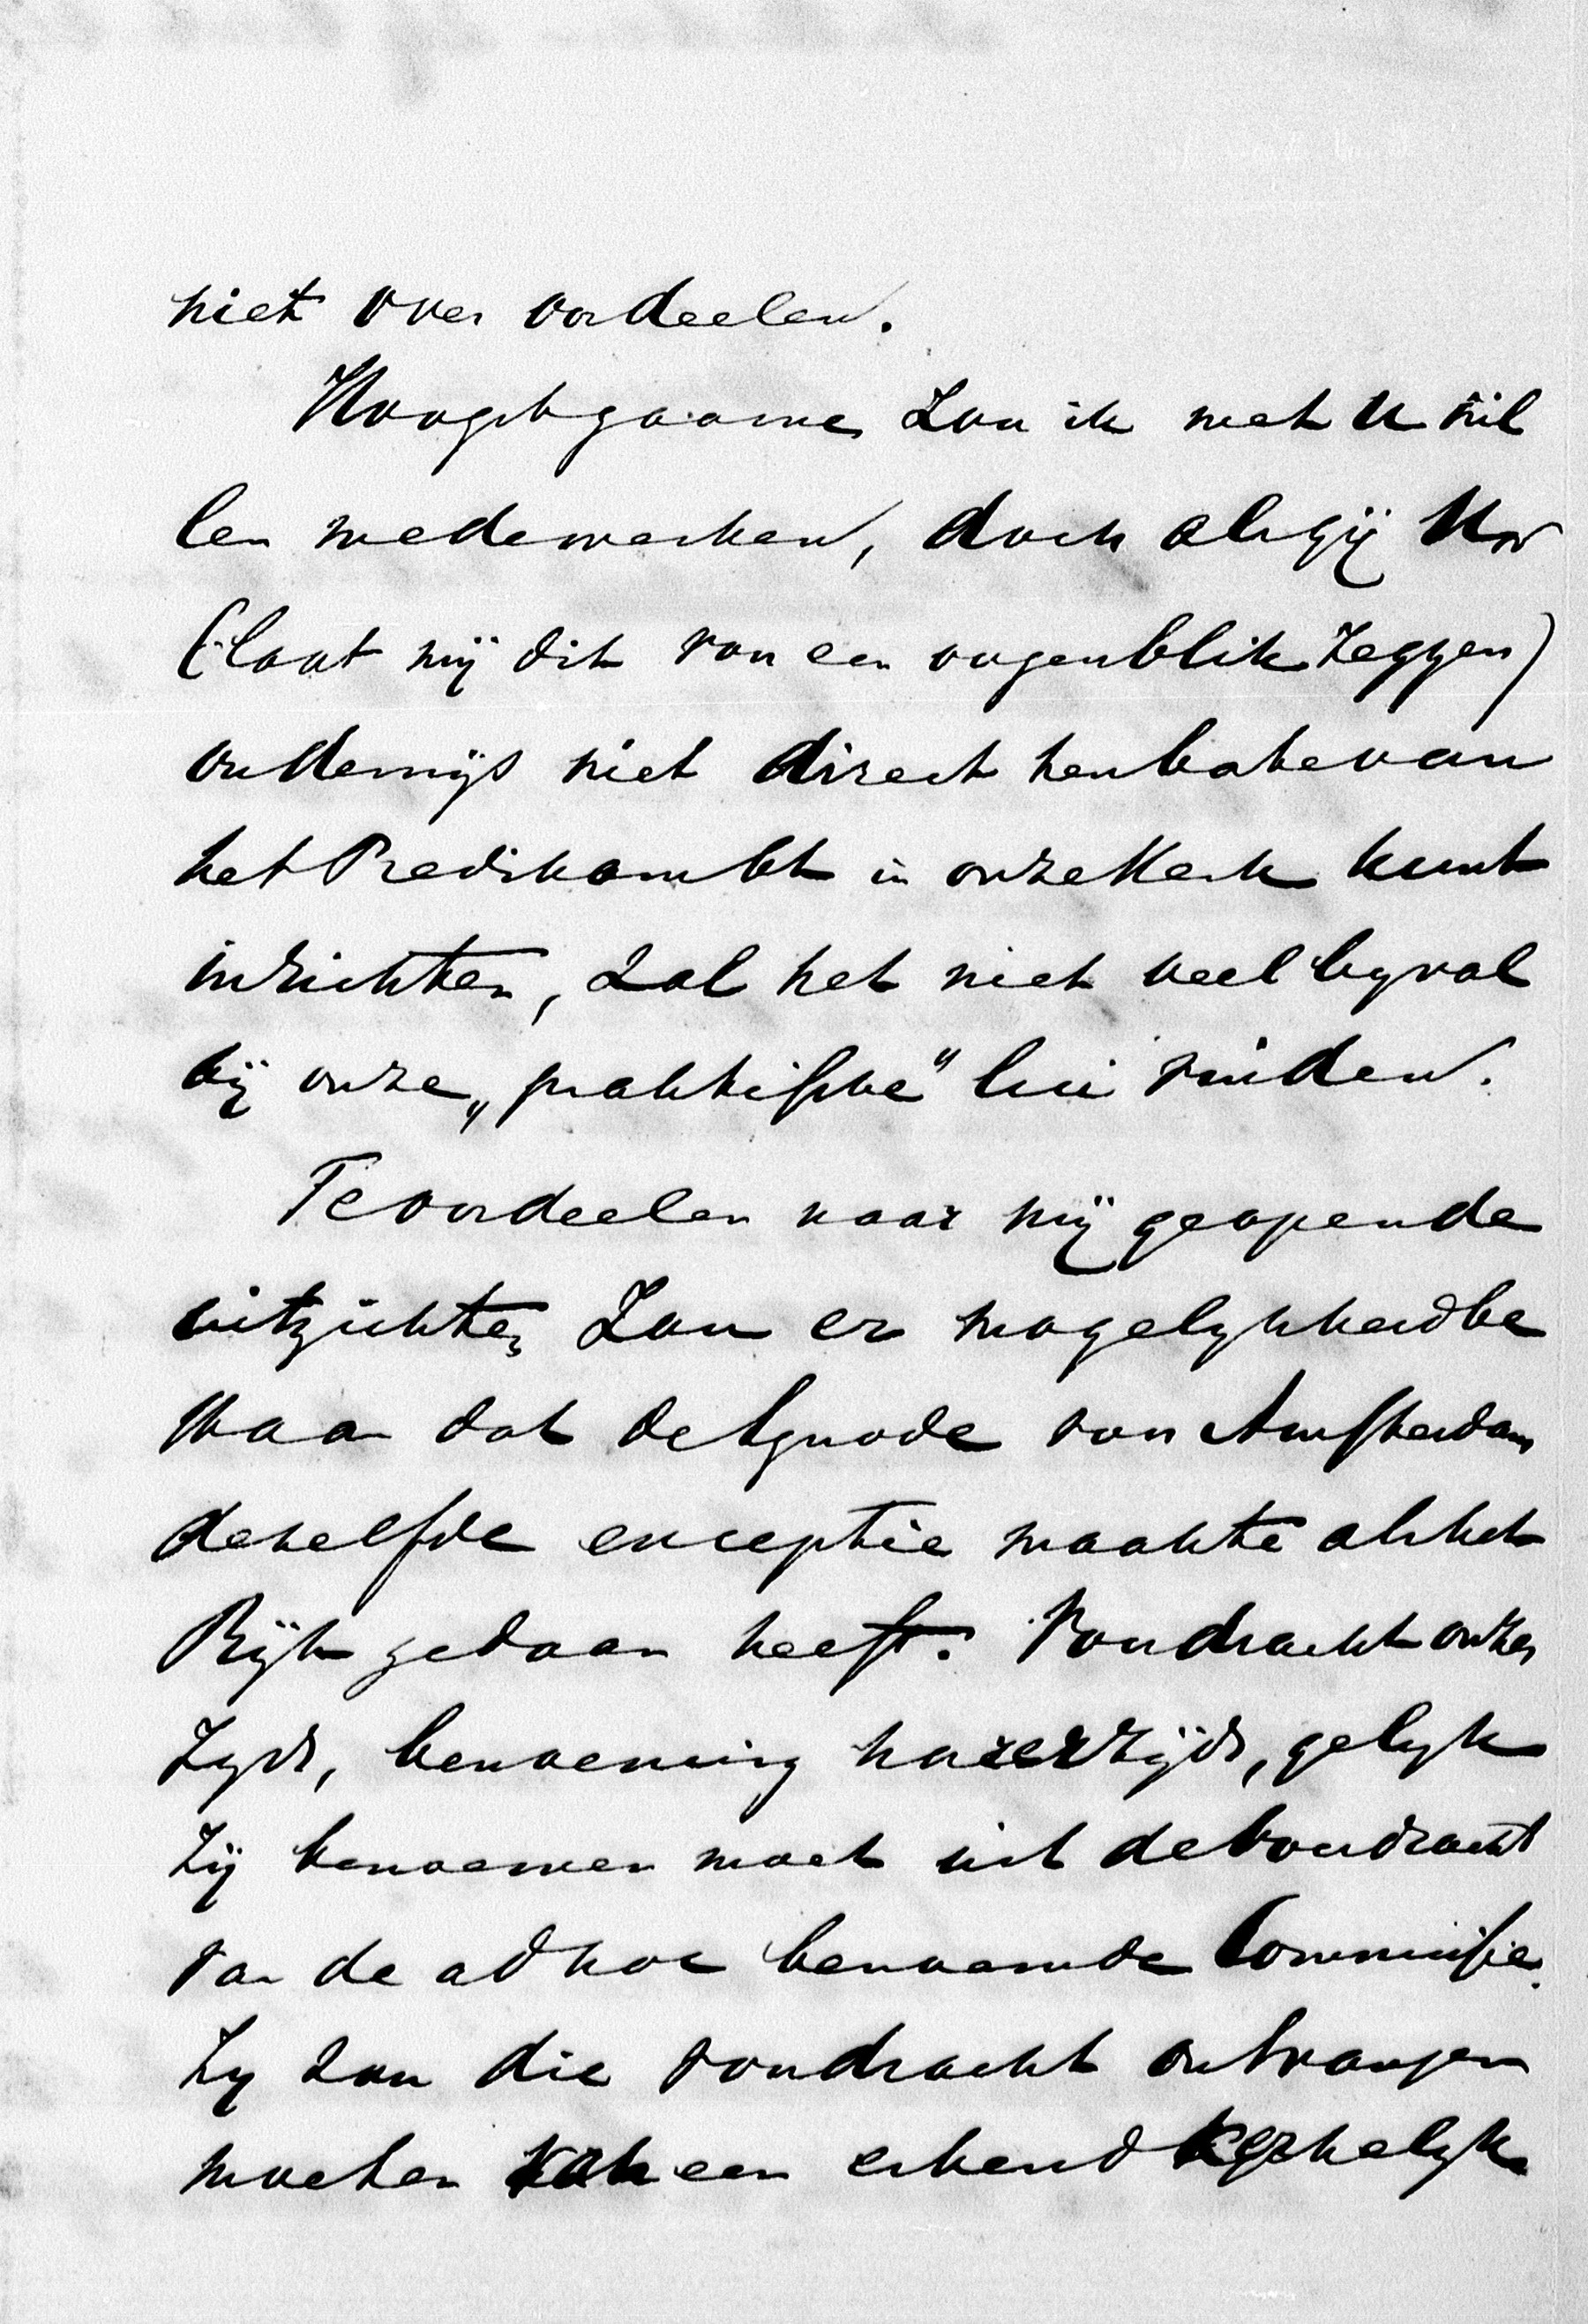 niet over oordeelen.
Hoogst gaarne zou ik met U wil
len medewerken, doch als gij Uw
(laat mij dit van een oogenblik zeggen)
onderwijs niet direct ten bate van
het Predikambt in onze Kerk kunt
inrichten, zal het niet veel byval
bij onze „praktische" lui vinden.
Te oordeelen naar mij geopende
uitzichten zou er mogelykheid be
staan dat de Synode van Amsterdam
dezelfde exceptie maakte als het
Rijk gedaan heeft. Voordracht onzer
zyds, benoeming harerzijds, gelyk
zij benoemen moet uit de voordracht
van de ad hoc benoemde Commissie.
Zy zou die voordracht ontvangen
moeten van een erkend kerkelyk